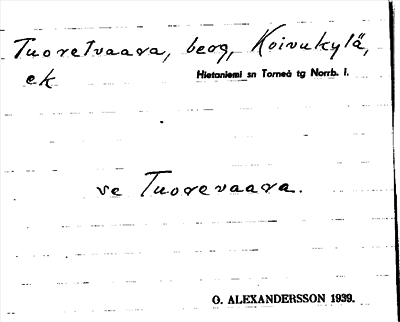 Tuoretvaara, berg, Koivukylä,
ek Hietaniemi sn Torneå tg Norrb. l.
se Tuorevaara.
O. ALEXANDERSSON 1939.